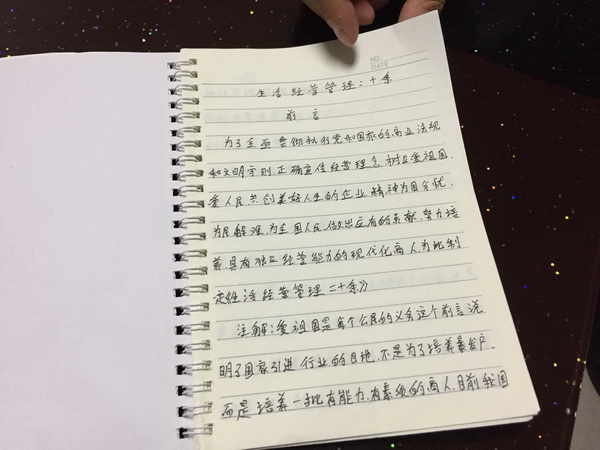 NO.
DATE
生活经营管理二十条
前言
为了全面贯彻执行党和国家的商业法规
和文明守则,正确宣传经营理念,树立爱祖国.
爱人民共创美好人生的企业精神为国分忧.
为民解难,为全国人民做出应有的贡献,努力培
养,具有独立经营能力的现代化商人,为此制
定《生活经营管理二十条》
注解:爱祖国是每个公民的义务这个前言说
明了国家引进行业的目地,不是为了培养暴发户.
而是培养一批有能力.有素质的商人.目前我国